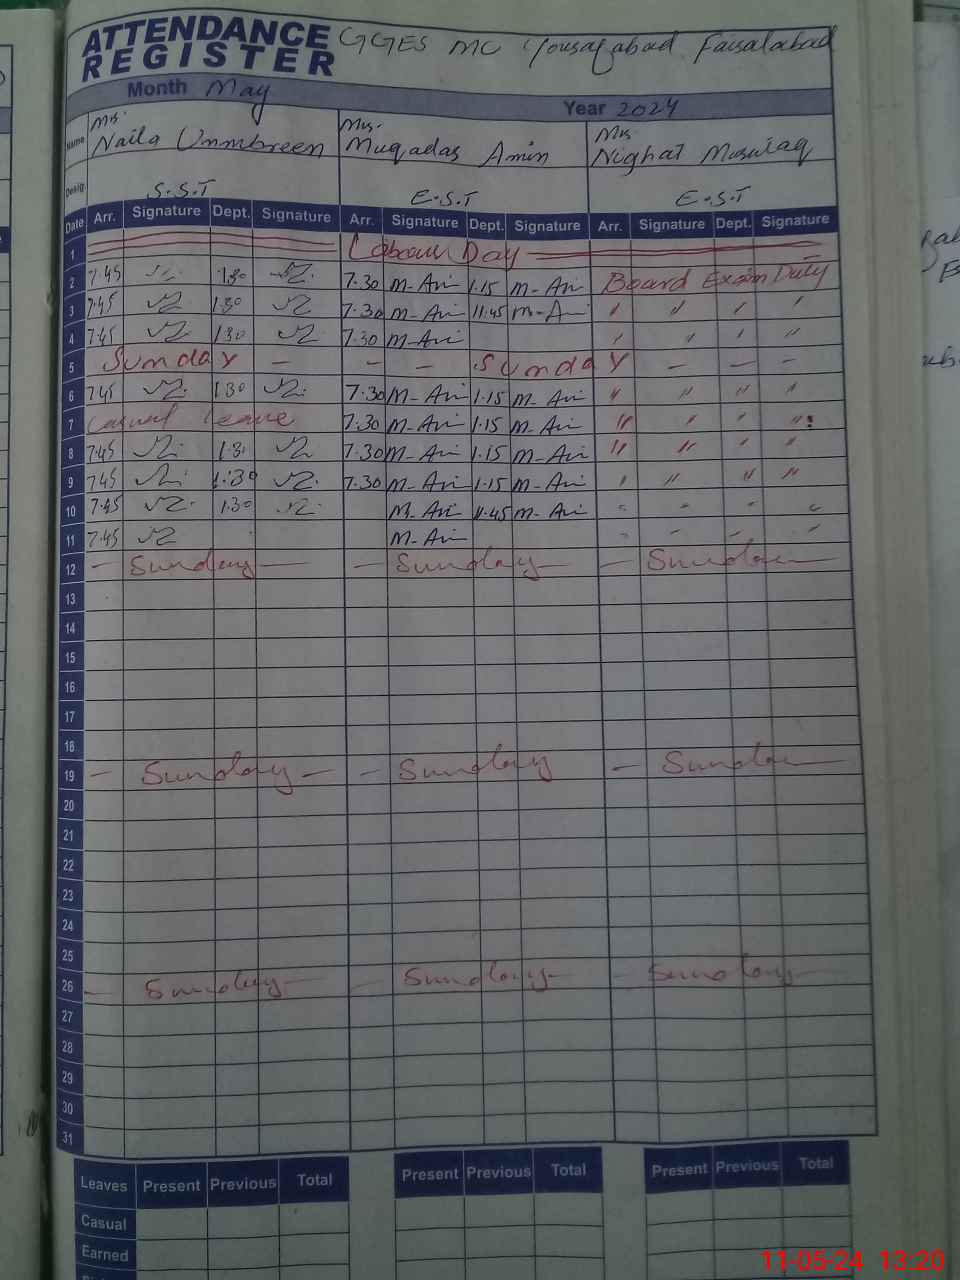 ATTENDANCE GGES MC Yousafabad Faisalabad
REGISTER
Month May
Year 2024
Name Mrs. Naila Unmbreen Mrs. Muqadas Amin Mrs Nighat
Desig. S.S.T E.S.T E.S.T
Date Arr. Signature Dept. Signature Arr. Signature Dept. Signature Arr. Signature Dept. Signature
1 Labour Day
2 7.45 1.30 7.30 M-Ain 1.15 M-Ain Board Exam Duty
3 7.45 1.30 7.30 M-Ain 11.45 M-Ain " " " "
4 7.45 1.30 7.30 M-Ain " " " "
5 Sunday - - - Sunday - - -
6 7.45 1.30 7.30 M-Ain 1.15 M-Ain " " " "
7 Casual leave 7.30 M-Ain 1.15 M-Ain " " " "
8 7.45 1.3 7.30 M-Ain 1.15 M-Ain " " " "
9 7.45 1.30 7.30 M-Ain 1.15 M-Ain " " " "
10 7.45 1.30 M-Ain 11.45 M-Ain " " " "
11 7.45 M-Ain " " " "
12 - Sunday - - Sunday - - Sunday
13
14
15
16
17
18
19 - Sunday - - Sunday - Sunday
20
21
22
23
24
25
26 - Sunday - - Sunday - - Sunday -
27
28
29
30
31
Leaves Present Previous Total Present Previous Total Present Previous Total
Casual
Earned
11-05-24 13:20